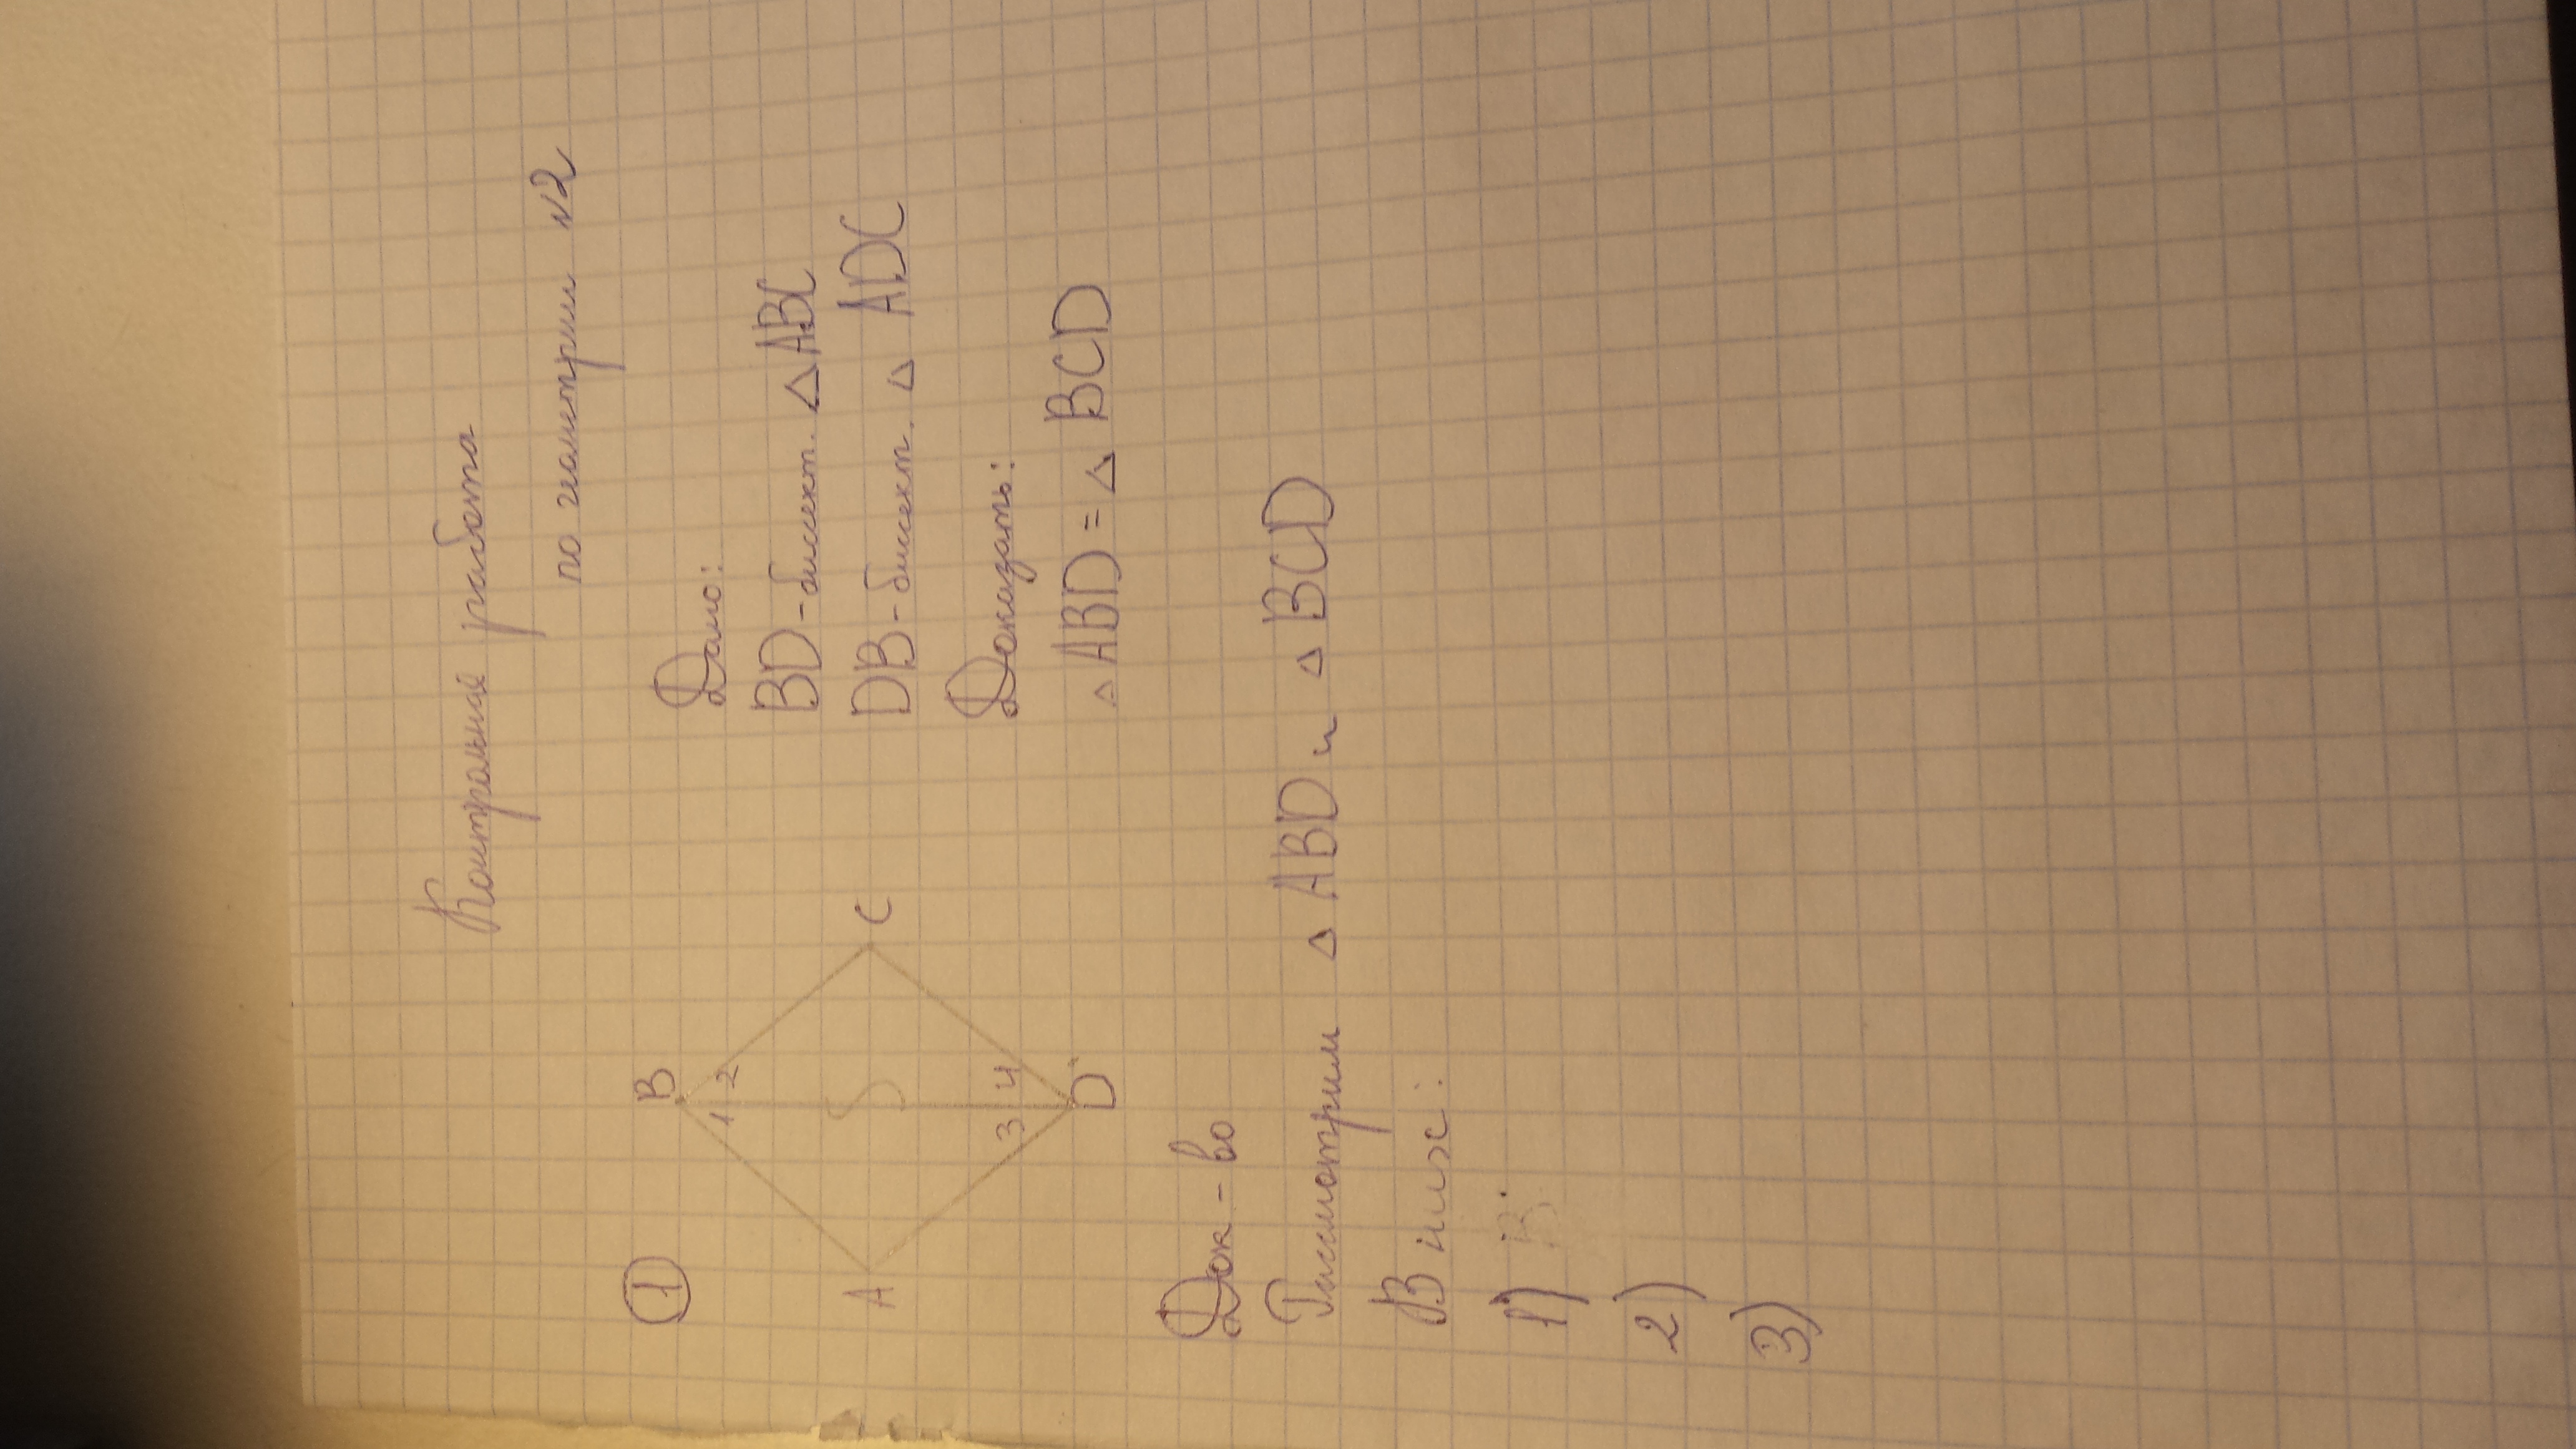 Контрольная работа
по геометрии №2
①
B
1 2
A
C
3 4
D
Дано:
BD - биссект. △ ABC
DB - биссект. △ ADC
Доказать:
△ ABD = △ BCD
Док-во
Рассмотрим △ ABD и △ BCD
В них:
1)
2)
3)